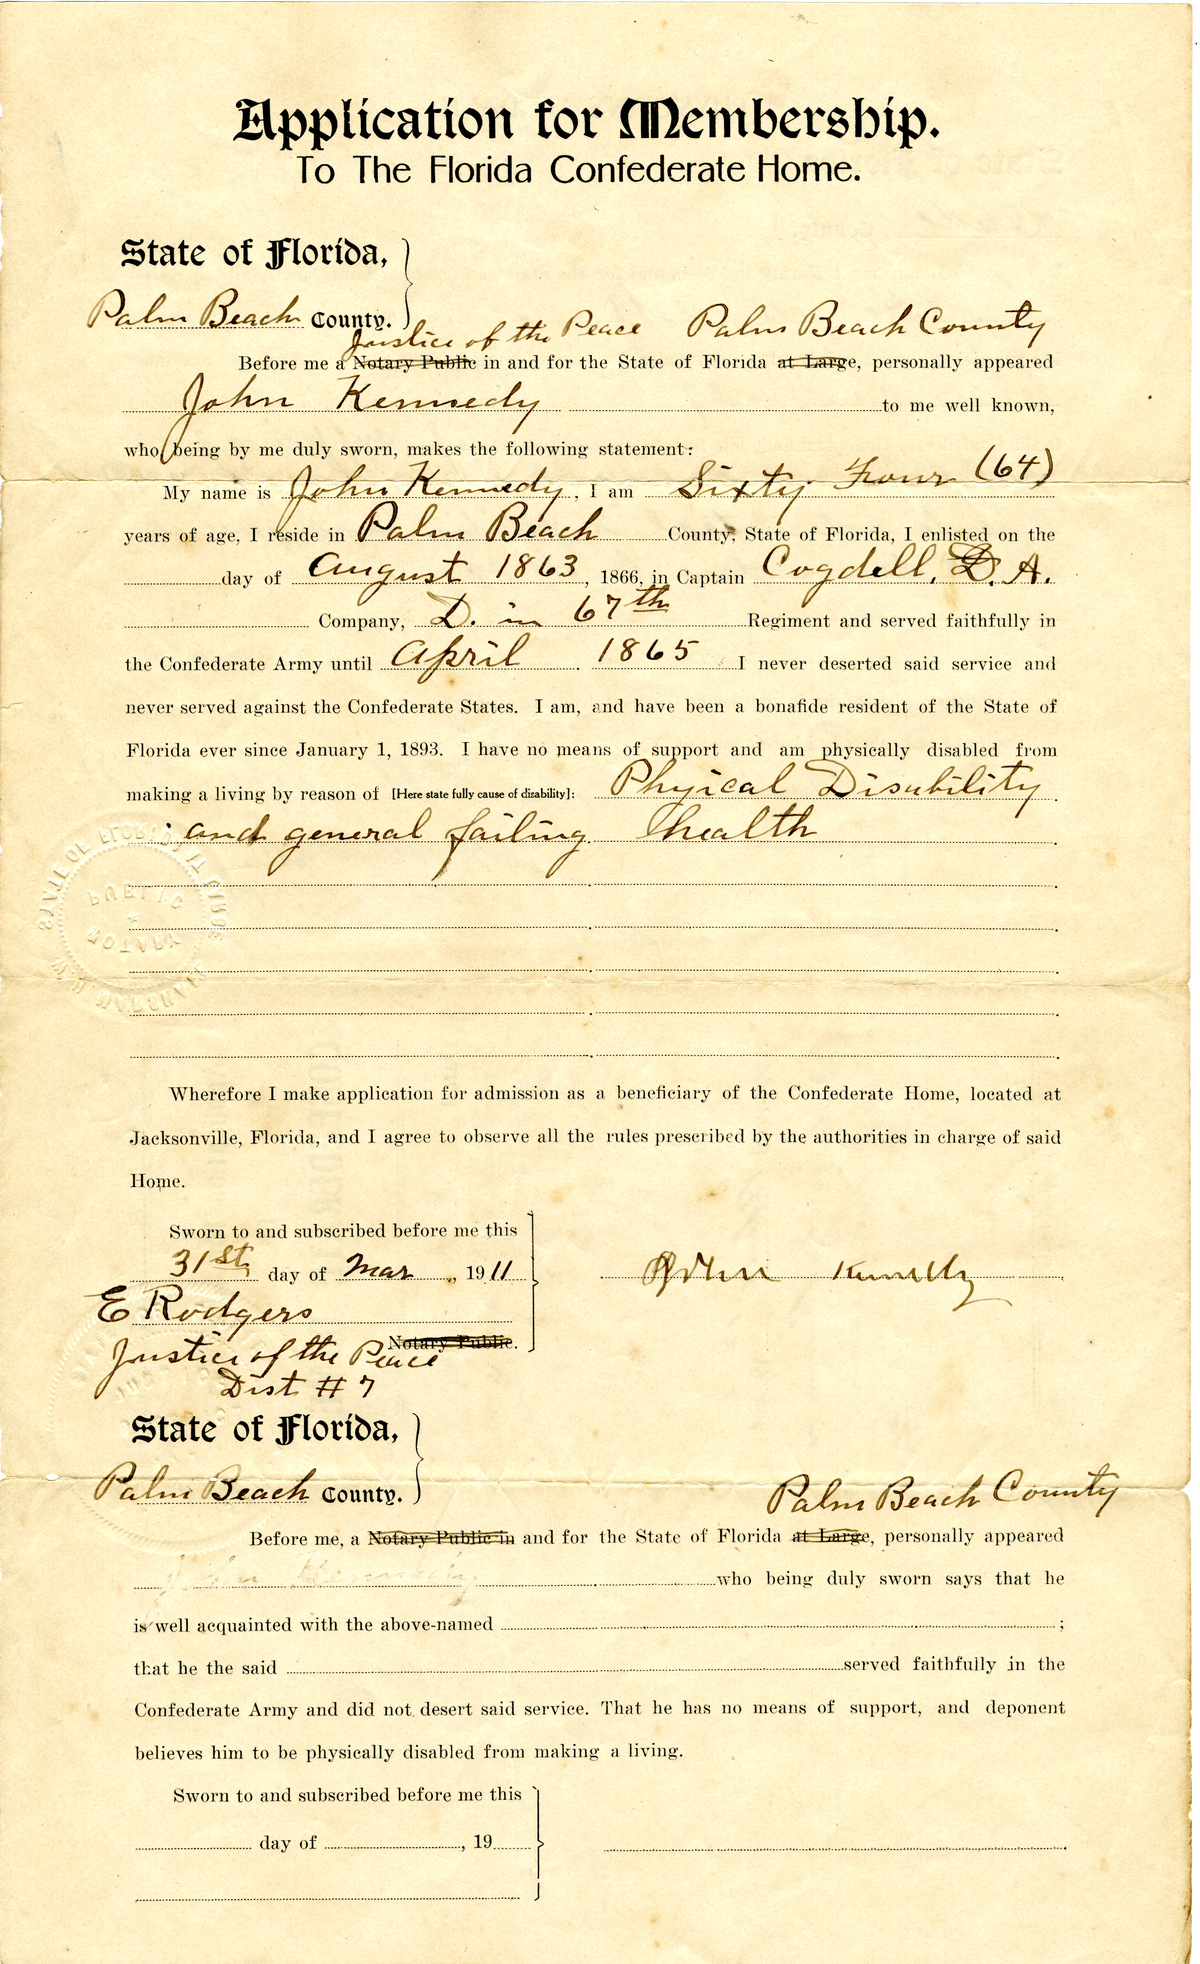 Application for Membership.
To The Florida Confederate Home.
State of Florida,
Palm Beach County.
Justice of the Peace Palm Beach County
Before me a Notary Public in and for the State of Florida at Large, personally appeared
John Kennedy to me well known,
who being by me duly sworn, makes the following statement:
My name is John Kennedy, I am Sixty Four (64)
years of age, I reside in Palm Beach County, State of Florida, I enlisted on the
day of August 1863, 1866, in Captain Cogdell, D. A.
Company, D. in 67th Regiment and served faithfully in
the Confederate Army until April 1865 I never deserted said service and
never served against the Confederate States. I am, and have been a bonafide resident of the State of
Florida ever since January 1, 1893. I have no means of support and am physically disabled from
making a living by reason of [Here state fully cause of disability]: Phyical Disability
and general failing health
Wherefore I make application for admission as a beneficiary of the Confederate Home, located at
Jacksonville, Florida, and I agree to observe all the rules prescribed by the authorities in charge of said
Home.
Sworn to and subscribed before me this
31st day of Mar, 1911
John Kennedy
E Rodgers
Notary Public.
Justice of the Peace
Dist # 7
State of Florida,
Palm Beach County.
Palm Beach County
Before me, a Notary Public in and for the State of Florida at Large, personally appeared
who being duly sworn says that he
is well acquainted with the above-named ;
that he the said served faithfully in the
Confederate Army and did not desert said service. That he has no means of support, and deponent
believes him to be physically disabled from making a living.
Sworn to and subscribed before me this
day of , 19